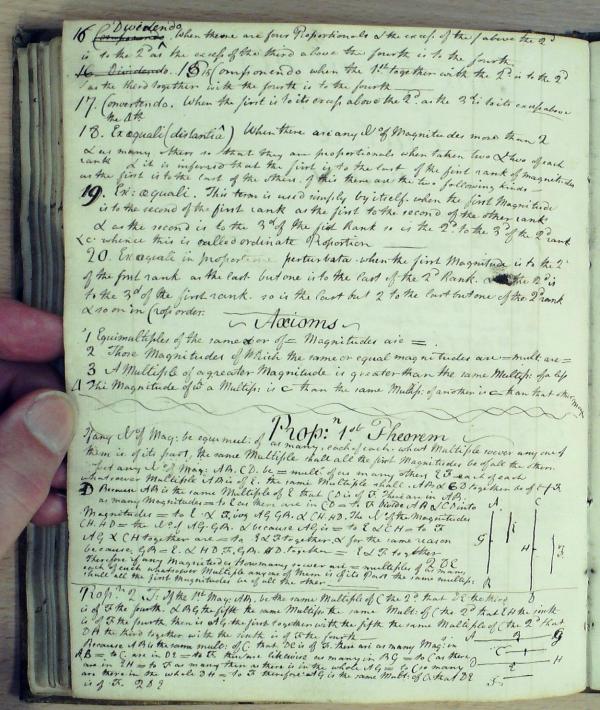 16 Dividendo. When there are four Proportionals & the excess of the 1 above the 2d
is to the 2d as the excess of the third above the fourth is to the fourth
16. Dividendo. 15th Componendo when the 1st together with the 2d is to the 2d
as the third together with the fourth is to the fourth
17. Convertendo. When the first is to its excess above the 2d. as the 3rd is to its excess above
the 4th
18. Ex æquali (distantiâ) When there are any No of Magnitudes more than 2
& as many others so that they are proportionals when taken two & two of each
rank & it is inferred that the first is to the last of the first rank of magnitudes
as the first is to the last of the others. of this there are the two following kinds
19. Ex: æquali. This term is used simply by itself. when the first Magnitude
is to the second of the first rank as the first to the second of the other rank
& as the second is to the 3d of the first Rank so is the 2d to the 3d of the 2d rank
&c. whence this is called ordinate Proportion
20. Ex æquali in proportione perturbata when the first Magnitude is to the 2d
of the first rank as the last but one is to the last of the 2d Rank. the 2d is
to the 3d of the first rank. so is the last but 2 to the last but one of the 2d rank
& so on in Cross order.
Axioms
1 Equimultiples of the same or of = Magnitudes are =.
2 Those Magnitudes of Which the same or equal magnitudes are = mult: are =
3 A Multiple of a greater Magnitude is greater than the same Multip: of a less
4 The Magnitude of a Multip: is than the same Multip: of another is than that other
Prop:n 1st Theorem
If any No of Mag: be equimul: of as many, each of each. what Multiple soever any one of
them is of its part, the same Multiple shall all the first Magnitudes be of all the others
Let any No of Mag: AB. CD. be = mult: of as many others E F each of each
whatsoever Multiple AB is of E. the same Multiple shall AB & CD together be of E & F.
D Because AB is the same Multiple of E that CD is of F. There are in AB.
as many Magnitudes = to E as there are in CD = to F. Divide AB & CD into
Magnitudes = to E & F. viz AG. GB. & CH. HD. The No of the Magnitudes
CH. HD = the No of AG. GB. & because AG is = to E & CH = to F.
AG & CH together are = to E & F together. & for the same reason
because. GB = E. & HD = F. GB. HD. together = E & F together
Therefore if any Magnitudes How many soever are = multiples of as many
each of each whatsoever Multiple any one of them is of its Part the same multiple
shall all the first Magnitudes be of all the other
Q D E
A C
E
G H F
B D
Prop:n 2 T: If the 1st Mag: AB. be the same Multiple of C the 2d. that DE the third
is of F the fourth. & BG the fifth the same Multip: of C the 2d that EH the sixth
is of F the fourth then is AG the first together with the fifth the same Multiple of C the 2d that
DH the third together with the sixth is of F the fourth
Because AB is the same mult: of C. that DE is of F. there are as many Mag: in
AB = to C. as in DE = to F. likewise as many in BG = to C as there
are in EH = to F as many then as there is in the whole AG = to C so many
are there in the whole DH = to F therefore AG is the same Mult: of C that DH
is of F. Q D E
A B G
C
D E H
F